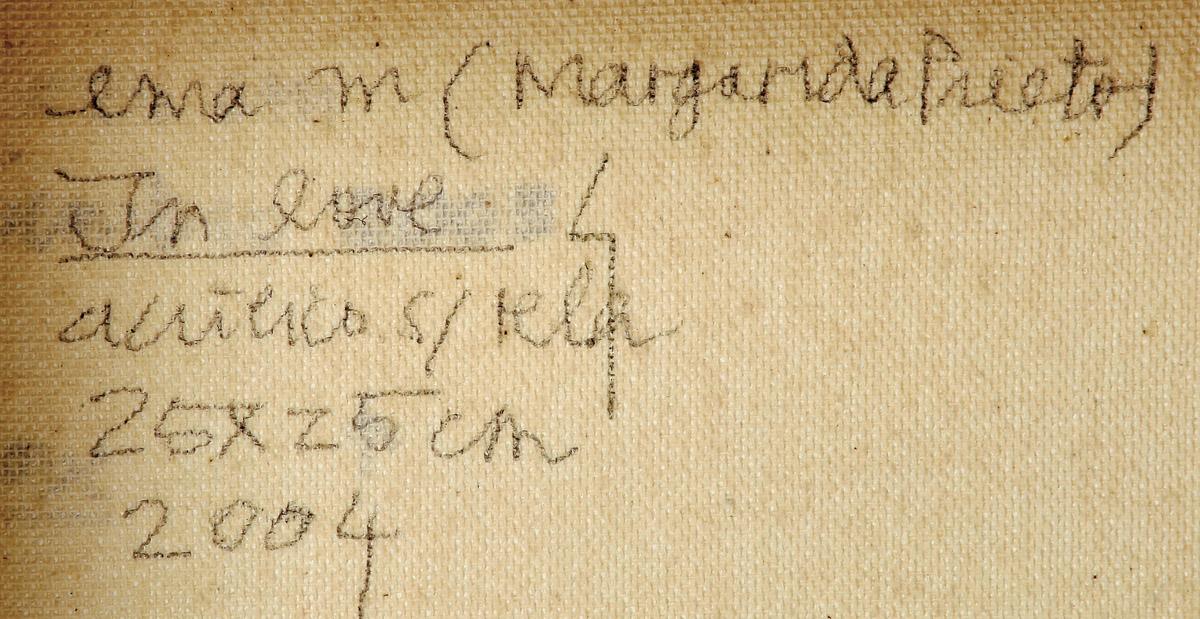 ema m (Margarida Prieto)
In love
acrílico s/ tela
25x25cm
2004